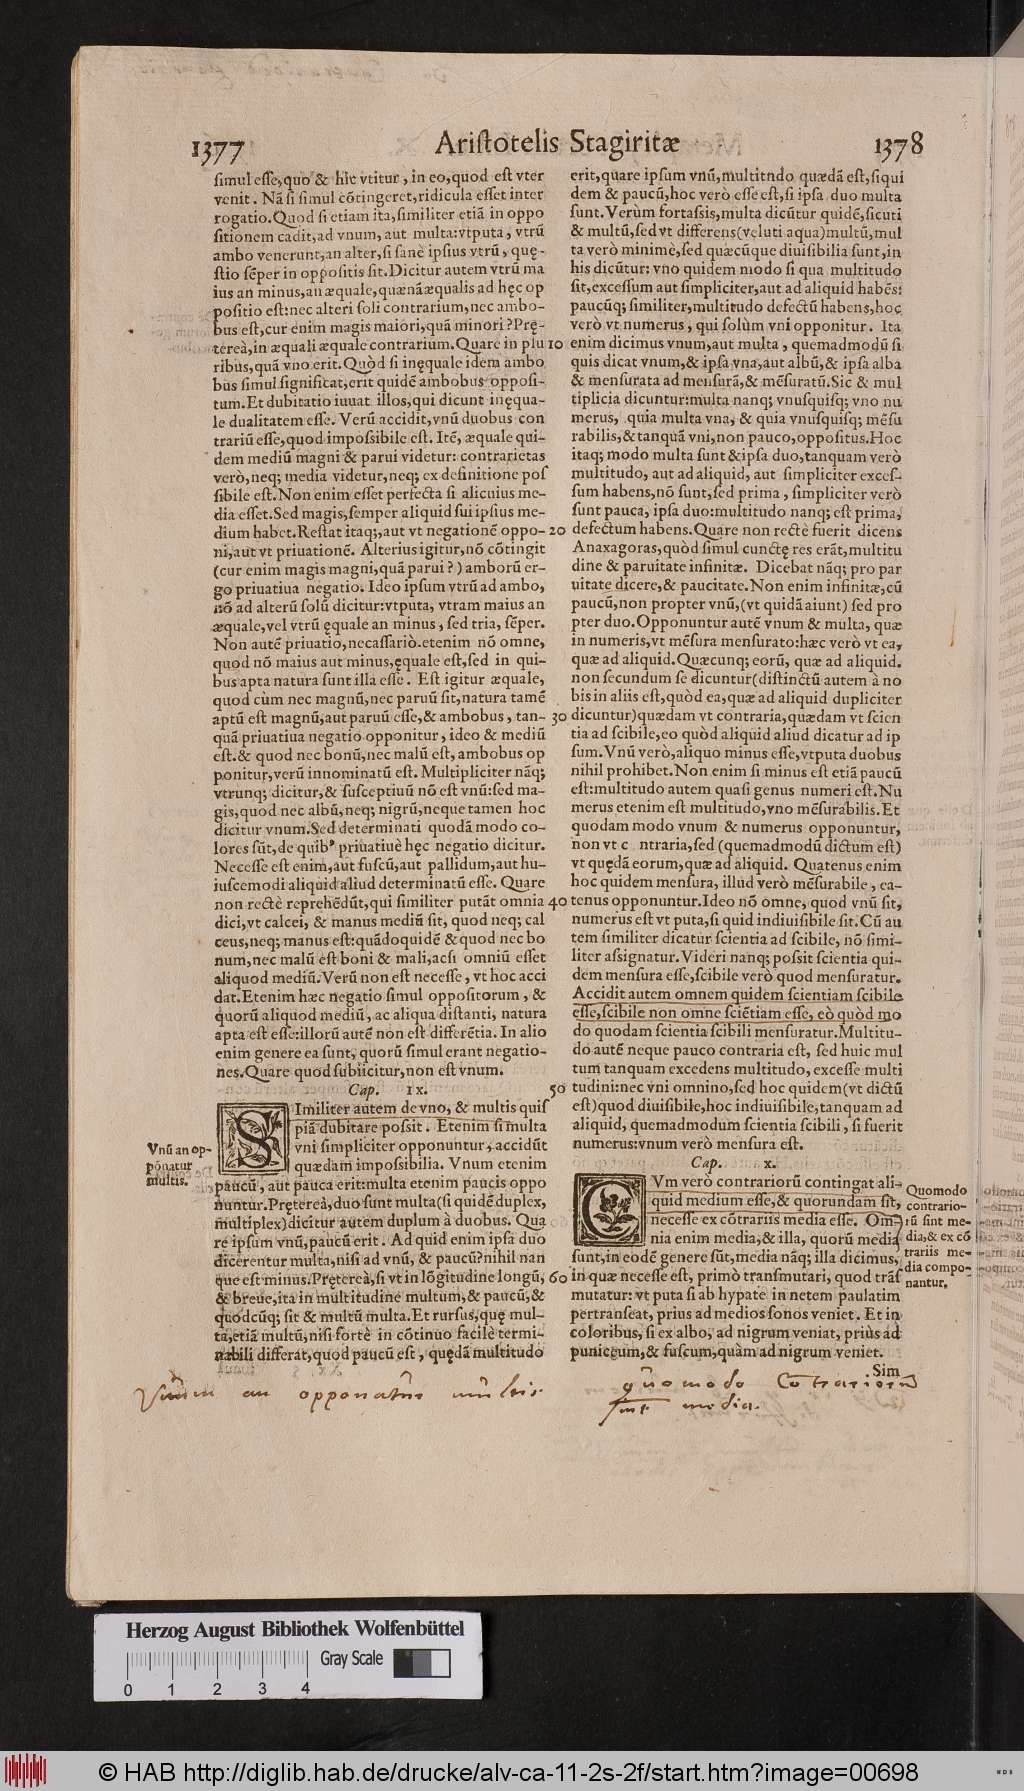 1377 Aristotelis Stagiritæ 1378
simul esse,quo & hic vtitur, in eo,quod est vter
venit. Nã si simul cõtingeret,ridicula esset inter
rogatio.Quod si etiam ita,similiter etiã in oppo
sitionem cadit,ad vnum, aut multa:vtputa, vtrũ
ambo venerunt,an alter,si sanè ipsius vtrũ, quę-
stio sẽper in oppositis sit.Dicitur autem vtrũ ma
ius an minus,an æquale,quænã æqualis ad hęc op
positio est:nec alteri soli contrarium,nec ambo-
bus est,cur enim magis maiori,quã minori? Prę-
tereà,in æquali æquale contrarium.Quare in plu 10
ribus,quã vno erit.Quòd si inęquale idem ambo
bus simul significat,erit quidẽ ambobus opposi-
tum.Et dubitatio iuuat illos,qui dicunt inęqua-
le dualitatem esse. Verũ accidit,vnũ duobus con
trariũ esse,quod impossibile est. Itẽ, æquale qui-
dem mediũ magni & parui videtur: contrarietas
verò,neq; media videtur,neq; ex definitione pos
sibile est.Non enim esset perfecta si alicuius me-
dia esset.Sed magis,semper aliquid sui ipsius me-
dium habet.Restat itaq;,aut vt negationẽ oppo- 20
ni,aut vt priuationẽ. Alterius igitur,nõ cõtingit
(cur enim magis magni,quã parui?) amborũ er-
go priuatiua negatio. Ideo ipsum vtrũ ad ambo,
nõ ad alterũ solũ dicitur:vtputa, vtram maius an
æquale,vel vtrũ ęquale an minus, sed tria, sẽper.
Non autẽ priuatio,necassariò.etenim nõ omne,
quod nõ maius aut minus,ęquale est,sed in qui-
bus apta natura sunt illa esse. Est igitur æquale,
quod cùm nec magnũ,nec paruũ sit,natura tamẽ
aptũ est magnũ,aut paruũ esse,& ambobus, tan- 30
quã priuatiua negatio opponitur, ideo & mediũ
est.& quod nec bonũ,nec malũ est, ambobus op
ponitur,verũ innominatũ est. Multipliciter nãq;
vtrunq; dicitur,& susceptiuũ nõ est vnũ:sed ma-
gis,quod nec albũ,neq; nigrũ,neque tamen hoc
dicitur vnum.Sed determinati quodã modo co-
lores sũt,de quibꝰ priuatiuè hęc negatio dicitur.
Necesse est enim,aut fuscũ,aut pallidum,aut hu-
iuscemodi aliquid aliud determinatũ esse. Quare
non rectè reprehẽdũt,qui similiter putãt omnia 40
dici,vt calcei, & manus mediũ sit, quod neq; cal
ceus,neq; manus est:quãdoquidẽ & quod nec bo
num,nec malũ est boni & mali,acsi omniũ esset
aliquod mediũ.Verũ non est necesse, vt hoc acci
dat.Etenim hæc negatio simul oppositorum, &
quorũ aliquod mediũ, ac aliqua distanti, natura
apta est esse:illorũ autẽ non est differẽtia. In alio
enim genere ea sunt, quorũ simul erant negatio-
nes.Quare quod subiicitur,non est vnum.
Cap. IX. 50
SImiliter autem de vno, & multis quis
piã dubitare possit. Etenim si multa
vni simpliciter opponuntur, accidũt
quædam impossibilia. Vnum etenim
paucũ, aut pauca erit:multa etenim paucis oppo
nuntur.Prętereà,duo sunt multa(si quidẽ duplex,
multiplex)dicitur autem duplum à duobus. Qua
re ipsum vnũ,paucũ erit. Ad quid enim ipsa duo
dicerentur multa,nisi ad vnũ, & paucũ?nihil nan
que est minus.Prętereà,si vt in lõgitudine longũ, 60
& breue,ita in multitudine multum,& paucũ,&
quodcũq; sit & multũ multa.Et rursus,quę mul-
ta,etiã multũ,nisi fortè in cõtinuo facilè termi-
nabili differãt,quod paucũ est, quędã multitudo
Vnũ an op-
põnatur
multis.
erit,quare ipsum vnũ,multitndo quædã est,siqui
dem & paucũ,hoc verò esse est,si ipsa duo multa
sunt.Verùm fortassis,multa dicũtur quidẽ,sicuti
& multũ,sed vt differens(veluti aqua)multũ,mul
ta verò minimè,sed quæcũque diuisibilia sunt,in
his dicũtur: vno quidem modo si qua multitudo
sit,excessum aut simpliciter,aut ad aliquid habẽs:
paucũq; similiter,multitudo defectũ habens,hoc
verò vt numerus, qui solùm vni opponitur. Ita
enim dicimus vnum,aut multa, quemadmodũ si
quis dicat vnum,& ipsa vna,aut albũ,& ipsa alba
& mensurata ad mensurã,& mẽsuratũ.Sic & mul
tiplicia dicuntur:multa nanq; vnusquisq; vno nu
merus, quia multa vna, & quia vnusquisq; mẽsu
rabilis,& tanquã vni,non pauco,oppositus.Hoc
itaq; modo multa sunt &ipsa duo,tanquam verò
multitudo, aut ad aliquid, aut simpliciter exces-
sum habens,nõ sunt,sed prima, simpliciter verò
sunt pauca, ipsa duo:multitudo nanq; est prima,
defectum habens.Quare non rectè fuerit dicens
Anaxagoras,quòd simul cunctę res erãt,multitu
dine & paruitate infinitæ. Dicebat nãq; pro par
uitate dicere,& paucitate.Non enim infinitæ,cũ
paucũ,non propter vnũ,(vt quidã aiunt) sed pro
pter duo.Opponuntur autẽ vnum & multa, quæ
in numeris,vt mẽsura mensurato:hæc verò vt ea,
quæ ad aliquid.Quæcunq; eorũ, quæ ad aliquid.
non secundum se dicuntur(distinctũ autem à no
bis in aliis est,quòd ea,quæ ad aliquid dupliciter
dicuntur)quædam vt contraria,quædam vt scien
tia ad scibile,eo quòd aliquid aliud dicatur ad ip
sum.Vnũ verò,aliquo minus esse,vtputa duobus
nihil prohibet.Non enim si minus est etiã paucũ
est:multitudo autem quasi genus numeri est.Nu
merus etenim est multitudo,vno mẽsurabilis.Et
quodam modo vnum & numerus opponuntur,
non vt c ntraria,sed (quemadmodũ dictum est)
vt quędã eorum,quæ ad aliquid. Quatenus enim
hoc quidem mensura, illud verò mẽsurabile, ea-
tenus opponuntur.Ideo nõ omne, quod vnũ sit,
numerus est vt puta,si quid indiuisibile sit.Cũ au
tem similiter dicatur scientia ad scibile, nõ simi-
liter assignatur.Videri nanq; possit scientia qui-
dem mensura esse,scibile verò quod mensuratur.
Accidit autem omnem quidem scientiam scibile
esse,scibile non omne sciẽtiam esse, eò quòd mo
do quodam scientia scibili mensuratur.Multitu-
do autẽ neque pauco contraria est, sed huic mul
tum tanquam excedens multitudo, excesse multi
tudini:nec vni omnino,sed hoc quidem(vt dictũ
est)quod diuisibile,hoc indiuisibile,tanquam ad
aliquid, quemadmodum scientia scibili, si fuerit
numerus:vnum verò mensura est.
Cap. X.
CVm verò contrariorũ contingat ali-
quid medium esse,& quorundam sit,
necesse ex cõtrariis media esse. Om-
nia enim media,& illa, quorũ media
sunt,in eodẽ genere sũt,media nãq; illa dicimus,
in quæ necesse est, primò transmutari, quod trãs
mutatur: vt puta si ab hypate in netem paulatim
pertranseat, prius ad medios sonos veniet. Et in
coloribus, si ex albo, ad nigrum veniat, priùs ad
puniceum,& fuscum,quàm ad nigrum veniet.
Sim
Quomodo
contrario-
rũ sint me-
dia,& ex cõ
trariis me-
dia compo-
nantur.
Vnum an opponatur multis.
quomodo Contrariorũ
sint media.
Herzog August Bibliothek Wolfenbüttel
Gray Scale
0 1 2 3 4
© HAB http://diglib.hab.de/drucke/alv-ca-11-2s-2f/start.htm?image=00698